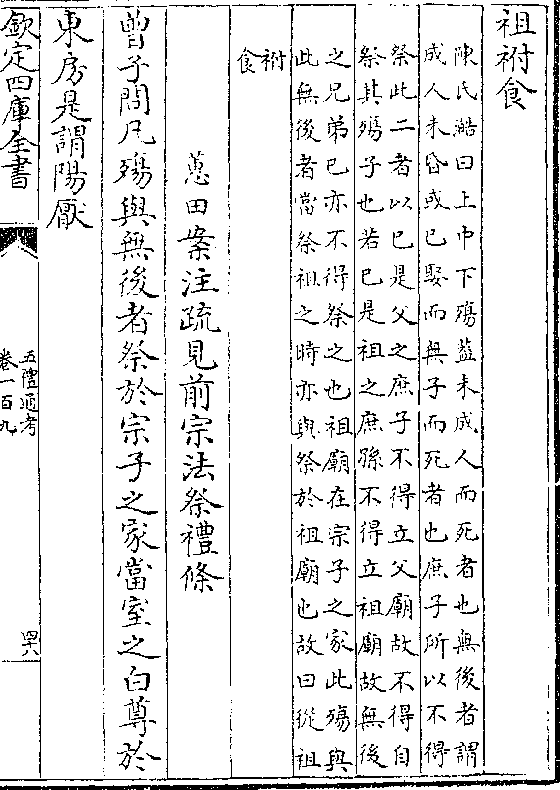 祖祔食
陳氏澔曰上中下殤葢未成人而死者也無後者謂
成人未昏或已娶而無子而死者也庶子所以不得
祭此二者以已是父之庶子不得立父廟故不得自
祭其殤子也若已是祖之庶孫不得立祖廟故無後
之兄弟已亦不得祭之也祖廟在宗子之家此殤與
此無後者當祭祖之時亦與祭於祖廟也故曰從祖
祔食
蕙田案注疏見前宗法祭禮條
曾子問凡殤與無後者祭於宗子之家當室之白尊於
東房是謂陽厭
欽定四庫全書
五禮通考
卷一百九
四六